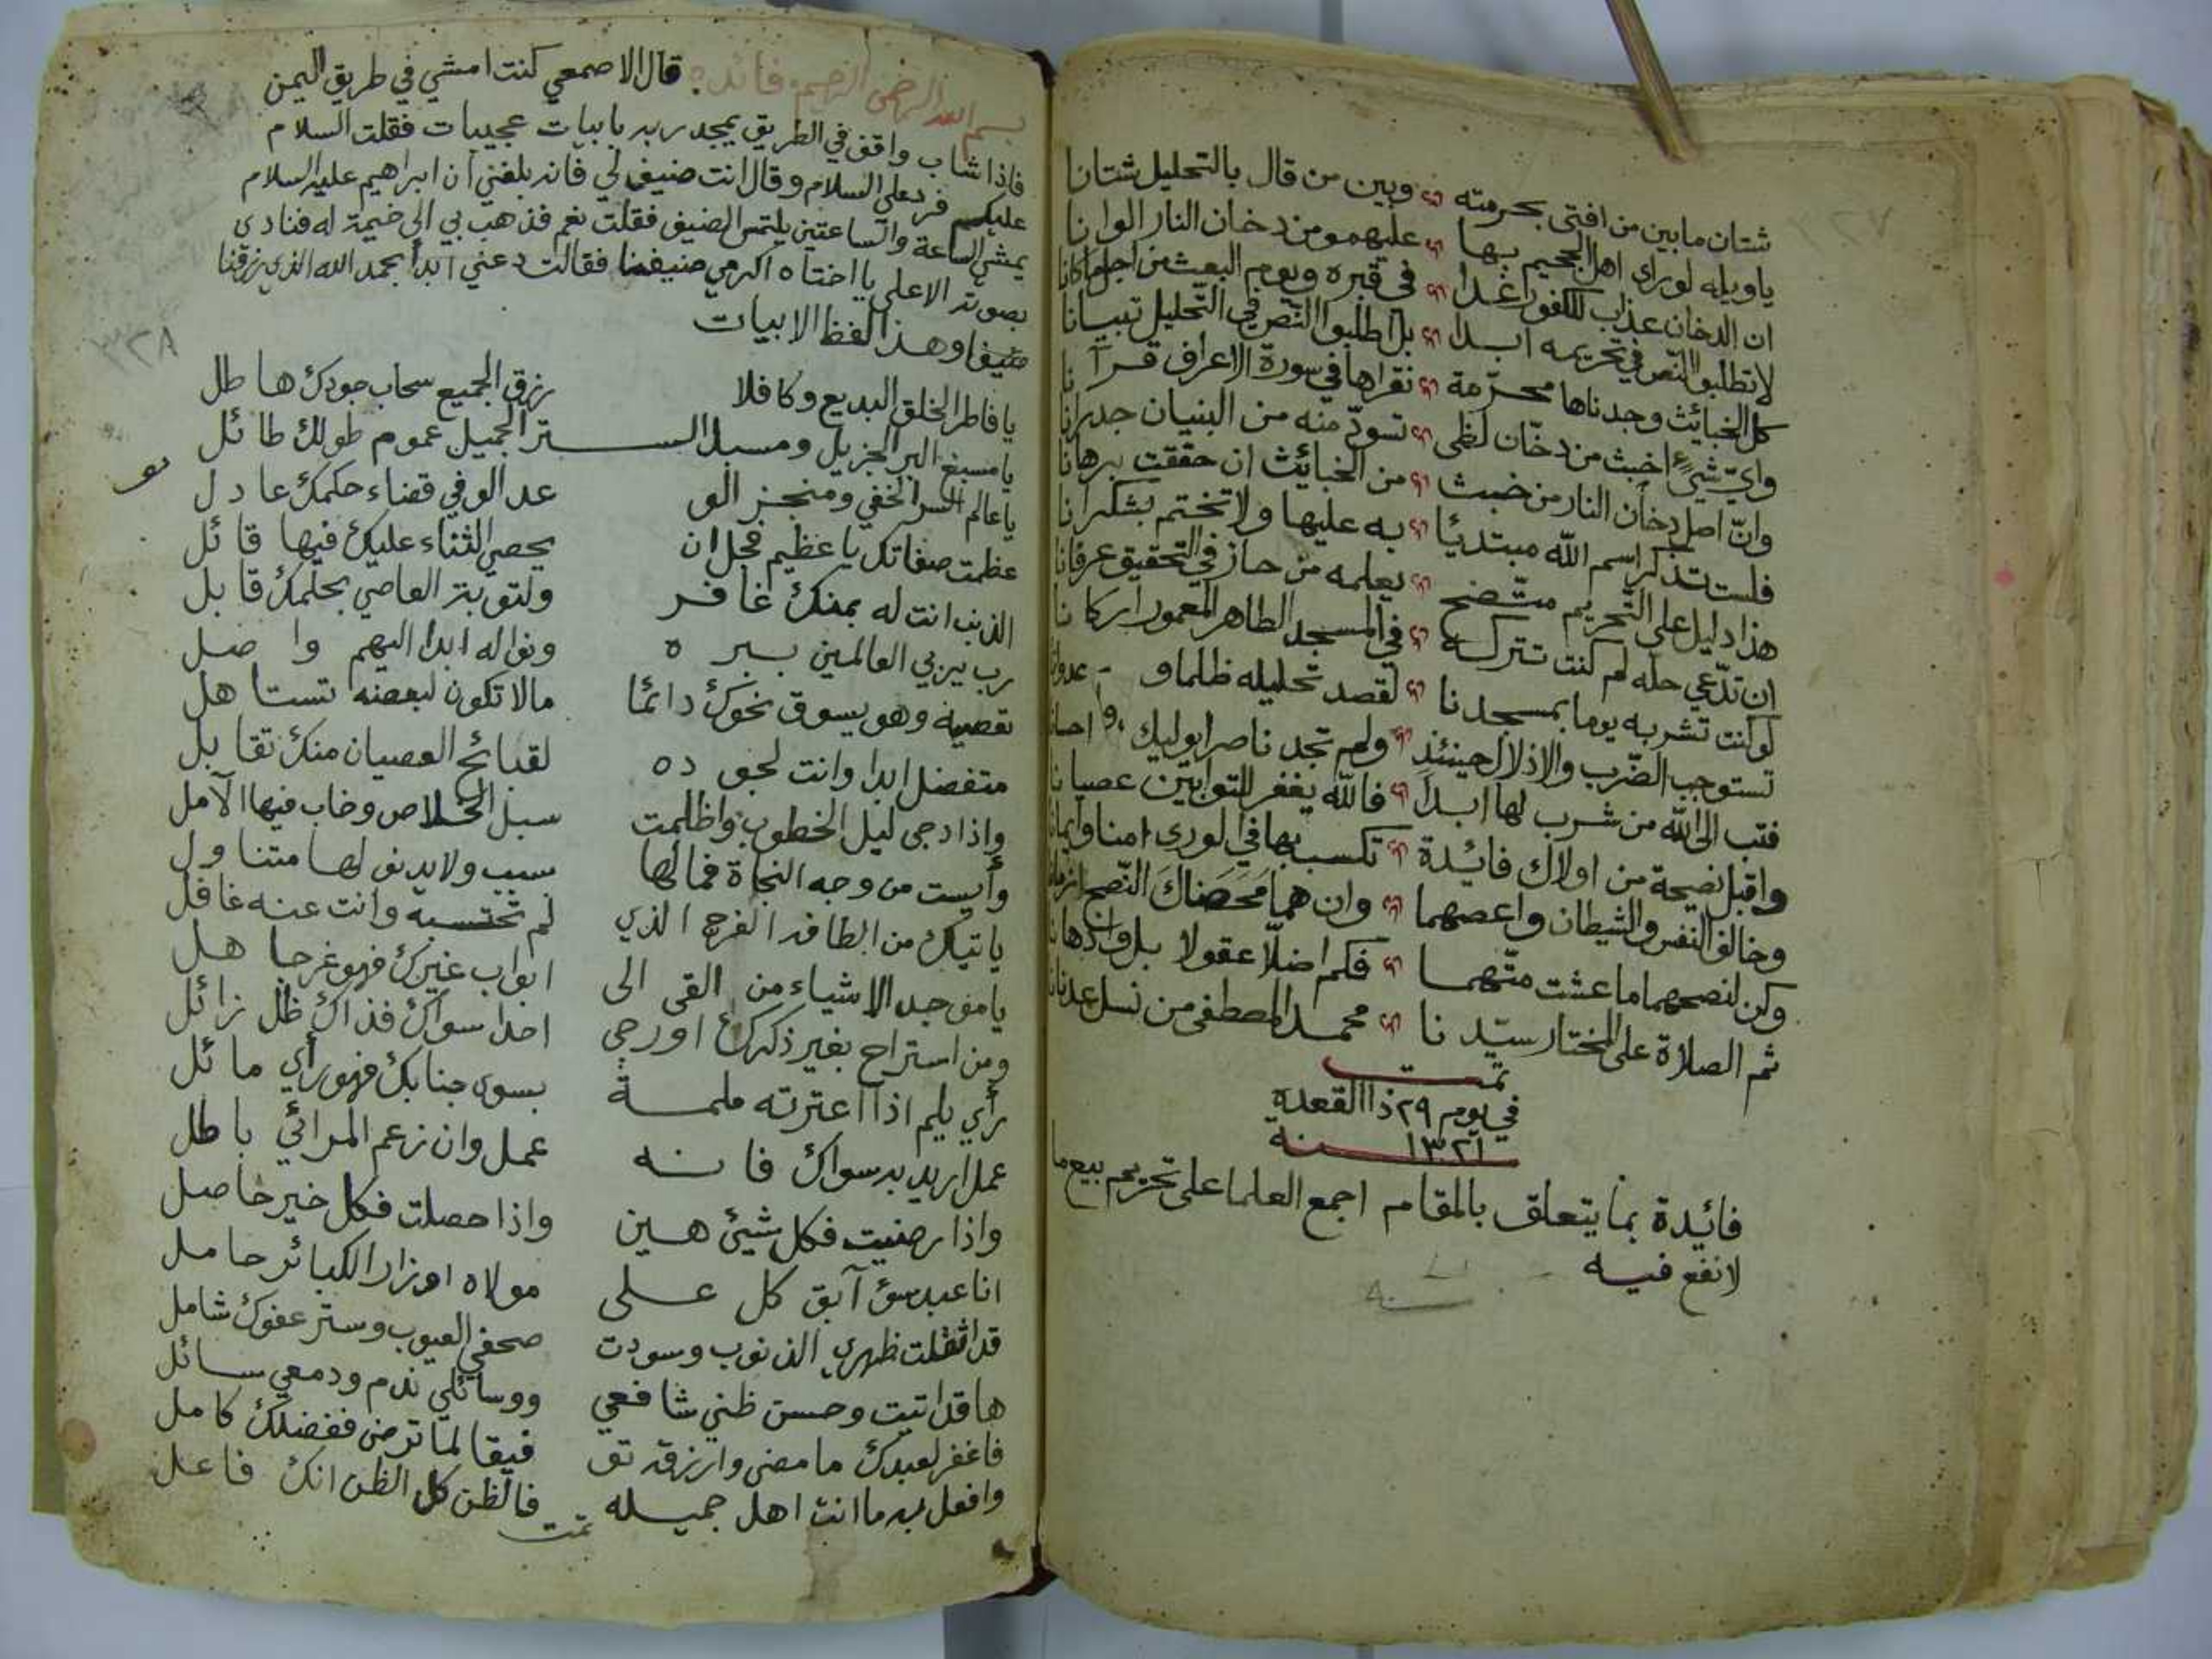 شتان مابين من افتى بحرمته وبين من قال بالتحليل شتانا
ياويله لوراى اهل الجحيم بها عليهمو من دخان النار الوانا
ان الدخان عذاب للكفور غدا في قبره ويوم البعث من اجل ماكانا
لاتطلبوا النص في تحريمه ابدا بل اطلبوا النص في التحليل تبيانا
كل الخبائث وجدناها محرمة نقراها في سورة الاعراف قرآنا
واي شيء اخبث من دخان لظى تسود منه من البنيان جدرانا
وان اصل دخان النار من خبث من الخبائث ان حققت برهانا
فلست تذكر اسم الله مبتدئا به عليها ولا تختم بشكرانا
هذا دليل على التحريم متضح يعلمه من حاز في التحقيق عرفانا
ان تدعي حله لم كنت تتركه في المسجد الطاهر المعمور اركانا
لو كنت تشربه يوما بمسجدنا لقصد تحليله ظلما وعدوانا
تستوجب الضرب والاذلال حينئذ ولم تجد ناصرا يوليك واحسانا
فتب الى الله من شرب لها ابدا فالله يغفر للتوابين عصيانا
واقبل نصيحة من اولاك فائدة تكسب بها في الورى امنا وايمانا
وخالف النفس والشيطان واعصهما وان هما محضاك النصح
وكن لنصحهما ماعشت متهما فكم اضلا عقولا بل واذهانا
ثم الصلاة على المختار سيدنا محمد المصطفى من نسل عدنانا
تمت
في يوم ٢٩ ذا القعدة
سنة ١٣٢١
فائدة بما يتعلق بالمقام اجمع العلما على تحريم بيع ما
لا نفع فيه
بسم الله الرحمن الرحيم فائده قال الاصمعي كنت امشي في طريق اليمن
فاذا شاب واقف في الطريق يمجد ربه بابيات عجيبات فقلت السلام
عليكم فرد علي السلام وقال انت ضيف لي فانه بلغني ان ابراهيم عليه السلام
يمشي الساعة والساعتين يلتمس الضيف فقلت نعم فذهب بي الى خيمة له فنادى
بصوته الاعلى يا اختاه اكرمي ضيفنا فقالت دعني ابدأ بحمد الله الذي رزقنا
ضيفا وهذا لفظ الابيات
يا فاطر الخلق البديع وكافلا رزق الجميع سحاب جودك هاطل
يا مسبغ البر الجزيل ومسبل الستر الجميل عموم طولك طائل
يا عالم السر الخفي ومنجز الو عد الوفي قضاء حكمك عادل
عظمت صفاتك يا عظيم فجل ان يحصي الثناء عليك فيها قائل
الذنب انت له بمنك غافر ولتوبة العاصي بحلمك قابل
رب يربي العالمين ببره ونواله ابدا اليهم واصل
تعصيه وهو يسوق نحوك دائما مالا تكون لبعضه تستاهل
متفضل ابدا وانت لجوده لقبائح العصيان منك تقابل
واذا دجى ليل الخطوب واظلمت سبل الخلاص وخاب فيها الآمل
وأيست من وجه النجاة فمالها سبب ولا يدنو لها متناول
ياتيك من الطافه الفرج الذي لم تحتسبه وانت عنه غافل
يا موجد الاشياء من القى الى ابواب غيرك فهو غر جاهل
ومن استراح بغير ذكرك او رجى احدا سواك فذاك ظل زائل
رأي يلم اذا اعترته ملمة بسوى جنابك فهو رأي مائل
عمل اريد به سواك فانه عمل وان زعم المرائي باطل
واذا رضيت فكل شيئ هين واذا حصلت فكل خير حاصل
انا عبد سوء آبق كل على مولاه اوزار الكبائر حامل
قد اثقلت ظهري الذنوب وسودت صحفي العيوب وستر عفوك شامل
ها قد اتيت وحسن ظني شافعي ووسائلي ندم ودمعي سائل
فاغفر لعبدك ما مضى وارزقه تو فيقا لما ترضى ففضلك كامل
وافعل به ما انت اهل جميله فالظن كل الظن انك فاعل
تمت
٣٢٨